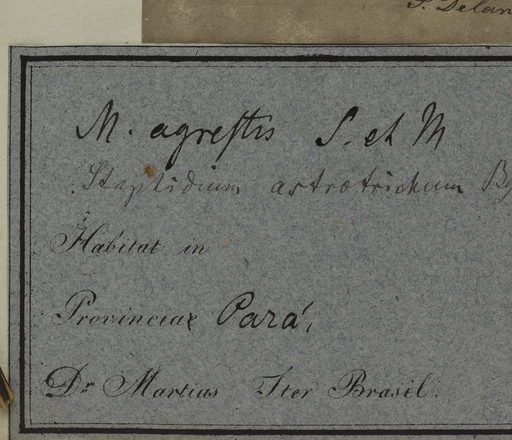 S. Delan
M. agrestis S. et M
Staphidium astrotrichum
Habitat in
Provinciae Pará,
Dr Martius Iter Brasil.